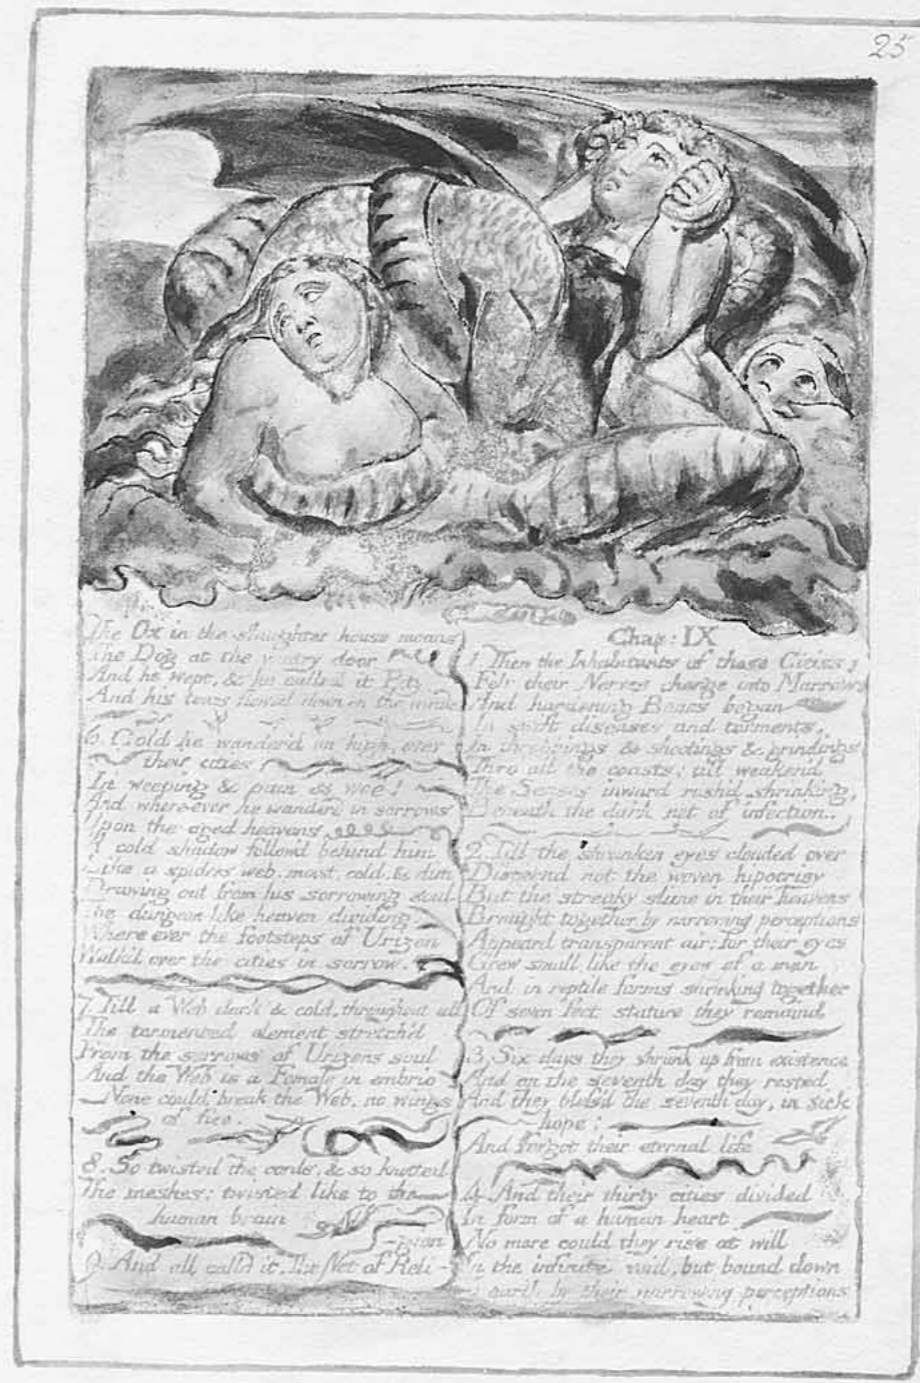 25
The Ox in the slaughter house moans
The Dog at the wintry door
And he wept, & he called it Pity
And his tears flowed down on the winds
6. Cold he wander'd on high, over
their cities
In weeping & pain & woe!
And where-ever he wanderd in sorrows
Upon the aged heavens
A cold shadow follow'd behind him
Like a spiders web, moist, cold, & dim
Drawing out from his sorrowing soul
The dungeon-like heaven dividing.
Where ever the footsteps of Urizen
Walk'd over the cities in sorrow.
7. Till a Web dark & cold, throughout all
The tormented element stretch'd
From the sorrows of Urizens soul
And the Web is a Female in embrio
None could break the Web, no wings
of fire.
8. So twisted the cords, & so knotted
The meshes: twisted like to the
human brain
-gion
9. And all calld it, The Net of Reli-
Chap: IX
1. Then the Inhabitants of those Cities;
Felt their Nerves change into Marrow
And hardening Bones began
In swift diseases and torments,
In throbbings & shootings & grindings
Thro' all the coasts; till weaken'd
The Senses inward rush'd shrinking,
Beneath the dark net of infection.
2. Till the shrunken eyes clouded over
Discernd not the woven hipocrisy
But the streaky slime in their heavens
Brought together by narrowing perceptions
Appeard transparent air; for their eyes
Grew small like the eyes of a man
And in reptile forms shrinking together
Of seven feet stature they remaind
3. Six days they shrunk up from existence
And on the seventh day they rested
And they bless'd the seventh day, in sick
hope:
And forgot their eternal life
4. And their thirty cities divided
In form of a human heart
No more could they rise at will
In the infinite void, but bound down
To earth by their narrowing perceptions